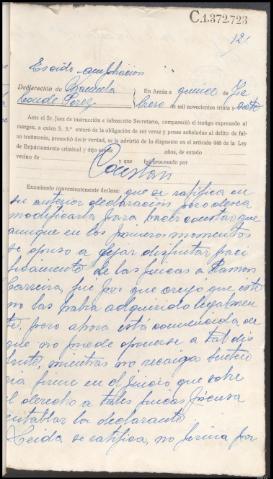 C.1.372.723
12
Escrito ampliacion
Declaración de Manuela
Conde Pérez
En Arzúa a quince de Fe
brero de mil novecientos treinta y siete
Ante el Sr. Juez de instrucción e infrascrito Secretario, compareció el testigo expresado al
margen, a quien S. S.ª enteró de la obligación de ser veraz y penas señaladas al delito de fal-
so testimonio, prometió decir verdad, se le advirtió de lo dispuesto en el artículo 446 de la Ley
de Enjuiciamiento criminal y dijo de años, de estado
vecino de y que
Constan
Examinado convenientemente declara: que se ratifica en
su anterior declaración, pero desea
modificarla para hacer constar que
aunque en los primeros momentos
se opuso a dejar disfrutar paci
ficamente de las fincas a Ramon
Carreira, fue por que creyo que este
no las habia adquirido legalmen
te, pero ahora está convencida de
que no puede oponerse a tal dis
frute, mientras no recaiga senten
cia firme en el juicio que sobre
el derecho a tales fincas piensa
entablar la declarante.
Leida se ratifica, no firma por